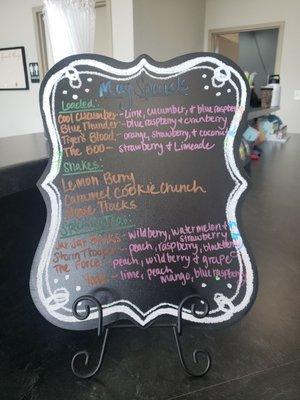 May Specials
Loaded:
Cool Cucumber - Lime, cucumber, & blue raspberry
Blue Thunder - blue raspberry & cranberry
Tiger's Blood - orange, strawberry, & coconut
The 500 - strawberry & Limeade
Shakes:
Lemon Berry
Caramel Cookie Crunch
Moose Tracks
Specialty Teas:
Jar Jar Binks - wildberry, watermelon &
strawberry
Storm Trooper - peach, raspberry, blackberry
The Force - peach, wildberry & grape
Yoda - lime, peach
mango, blue raspberry